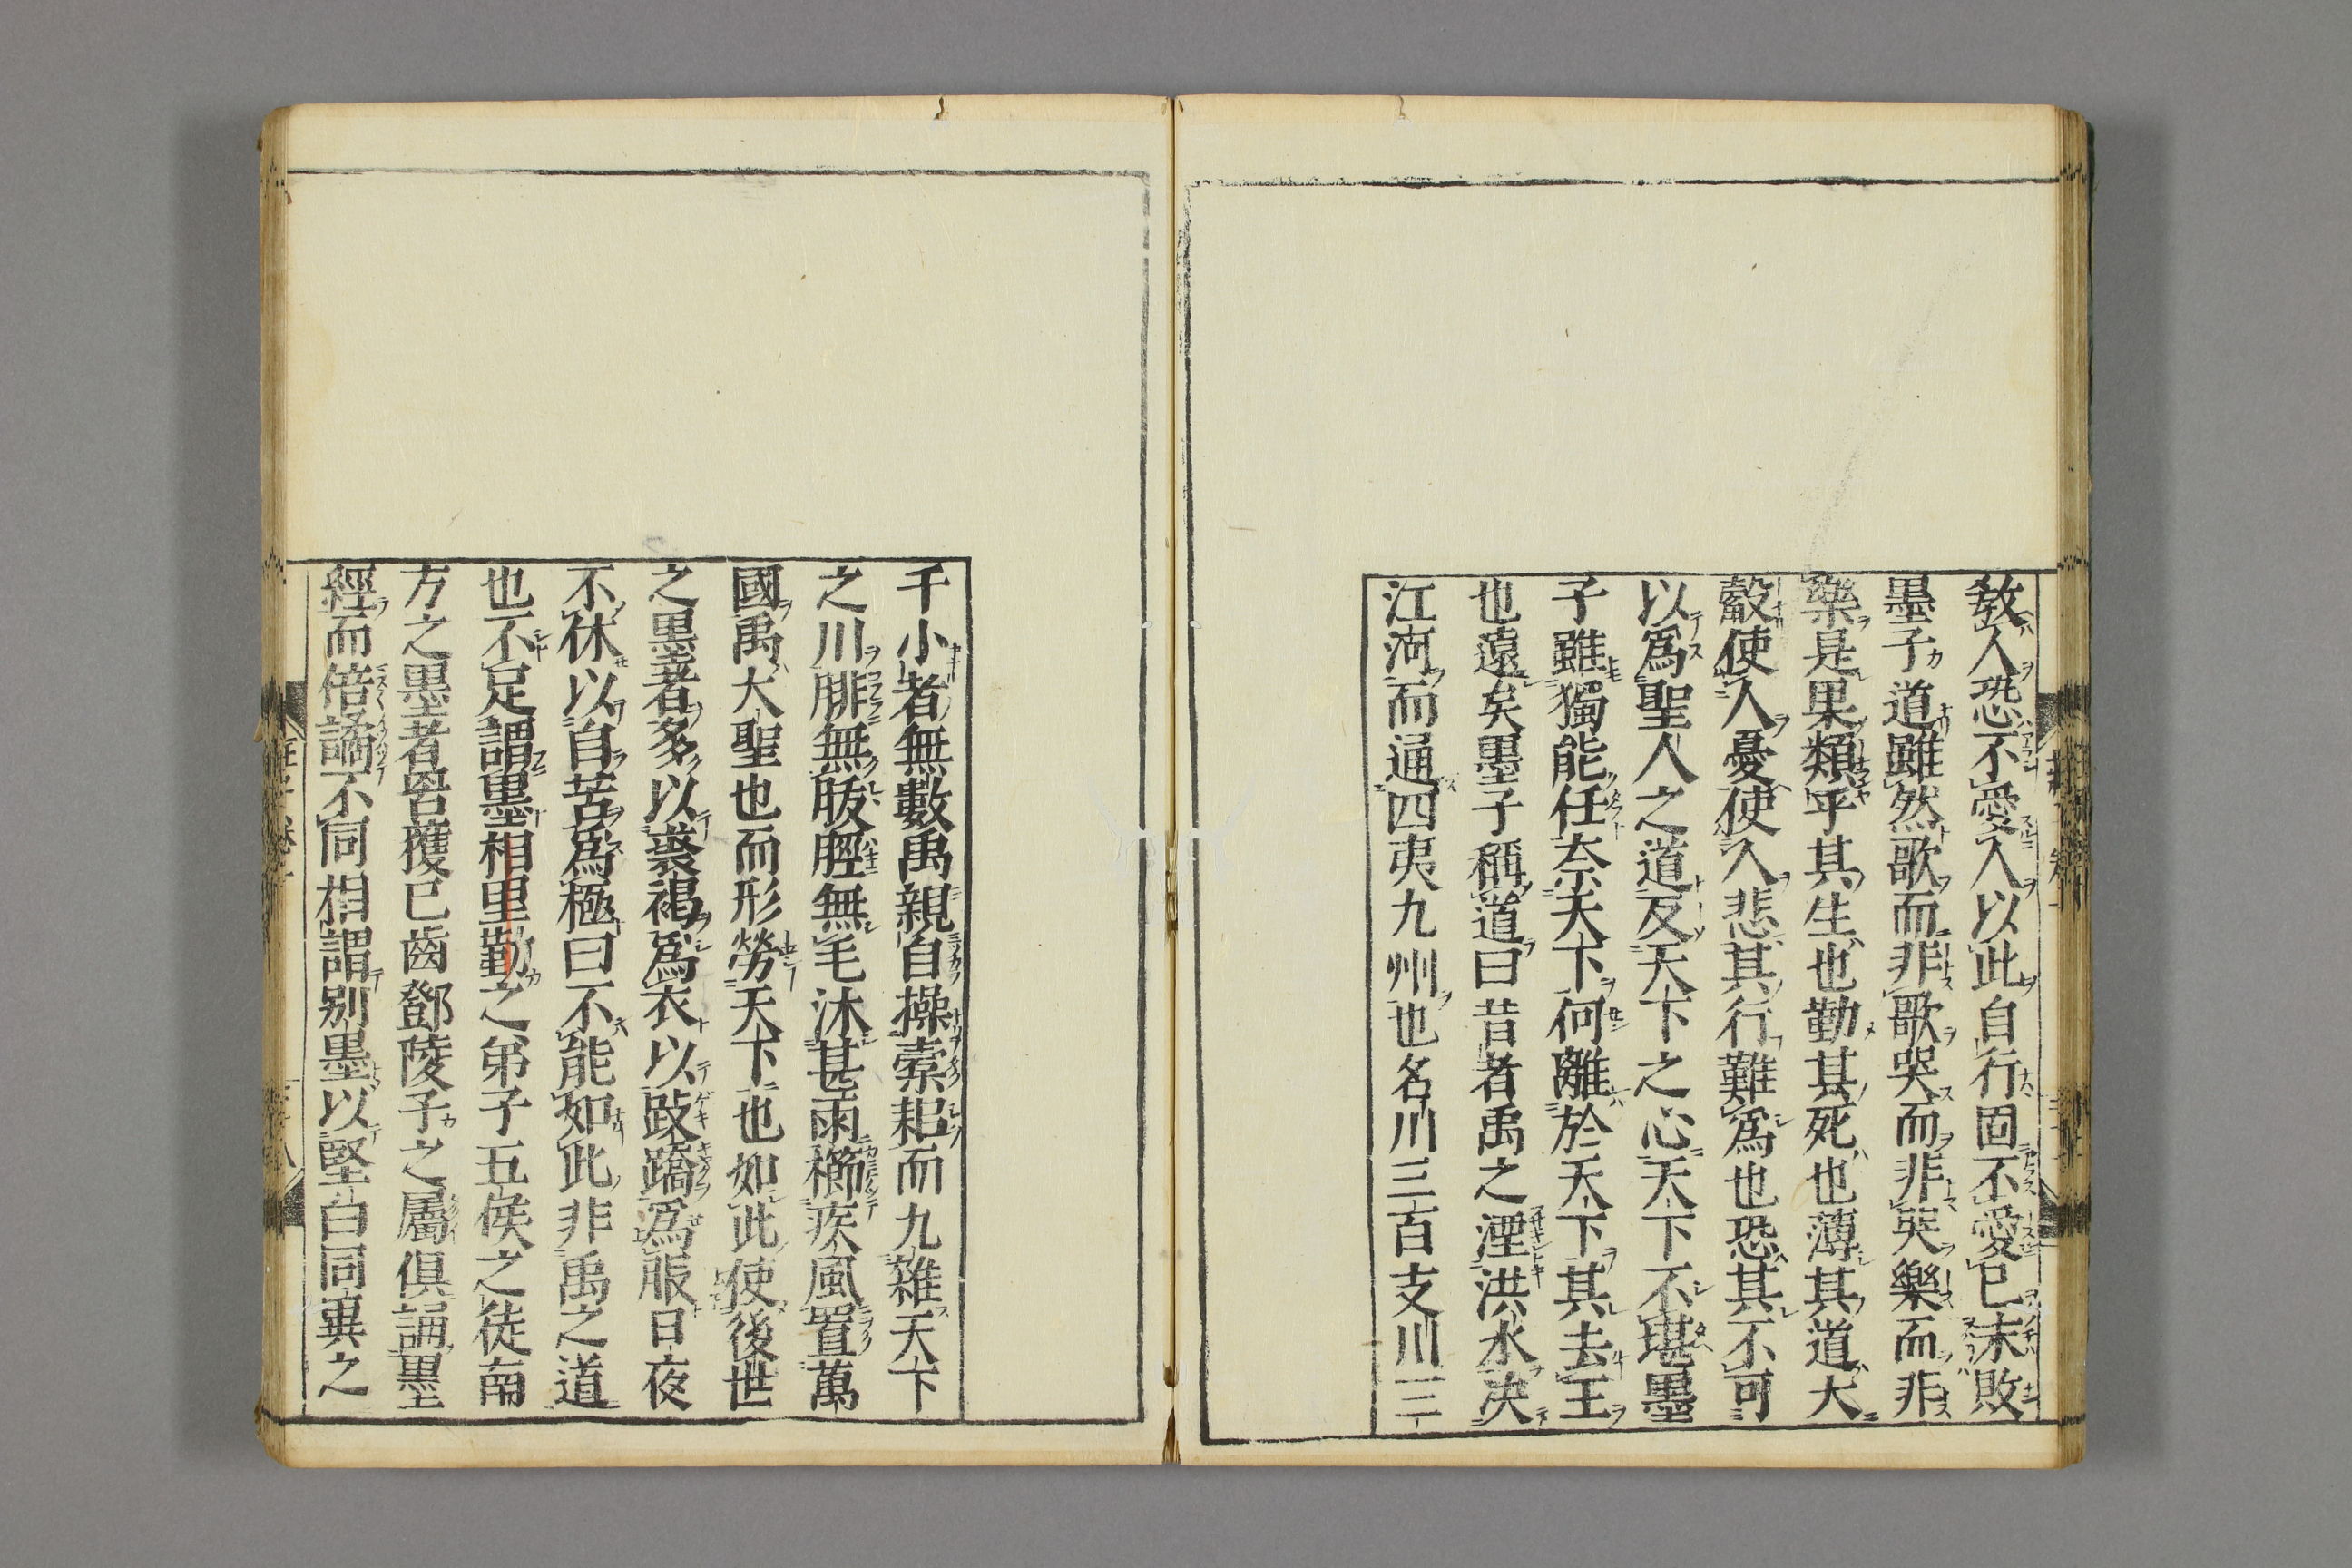 教人恐不愛人以此自行固不愛已未敗
墨子道雖然歌而非歌哭而非哭樂而非
樂是果類乎其生也勤其死也薄其道大
觳使人憂使人悲其行難為也恐其不可
以為聖人之道反天下之心天下不堪墨
子雖獨能任奈天下何離於天下其去王
也遠矣墨子稱道曰昔者禹之湮洪水决
江河而通四夷九州也名川三百支川三
千小者無數禹親自操槖耜而九雜天下
之川腓無胈脛無毛沐甚雨櫛疾風置萬
國禹大聖也而形勞天下也如此使後世
之墨者多以裘褐為衣以跂蹻為服日夜
不休以自苦為極曰不能如此非禹之道
也不足謂墨相里勤之弟子五侯之徒南
方之墨者苦獲已齒鄧陵子之屬俱誦墨
經而倍譎不同相謂别墨以堅白同異之